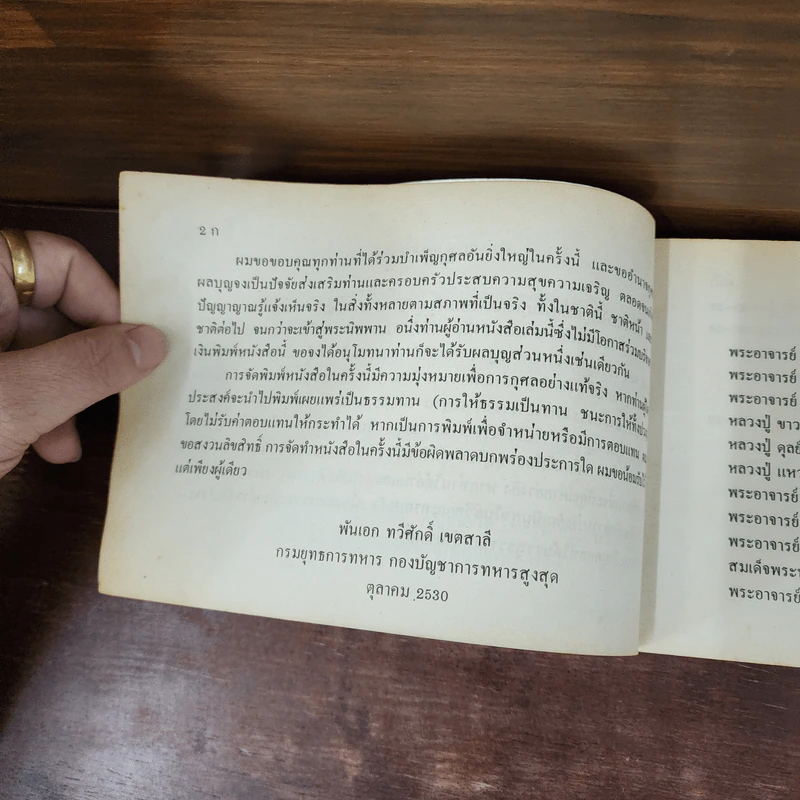 2 ก
ผมขอขอบคุณทุกท่านที่ได้ร่วมบำเพ็ญกุศลอันยิ่งใหญ่ในครั้งนี้ และขออำนาจ
ผลบุญจงเป็นปัจจัยส่งเสริมท่านและครอบครัวประสบความสุขความเจริญ ตลอดจน
ปัญญาญาณรู้แจ้งเห็นจริง ในสิ่งทั้งหลายตามสภาพที่เป็นจริง ทั้งในชาตินี้ ชาติหน้า
ชาติต่อไป จนกว่าจะเข้าสู่พระนิพพาน อนึ่งท่านผู้อ่านหนังสือเล่มนี้ซึ่งไม่มีโอกาสร่วม
เงินพิมพ์หนังสือนี้ ขอจงได้อนุโมทนาท่านก็จะได้รับผลบุญส่วนหนึ่งเช่นเดียวกัน
การจัดพิมพ์หนังสือในครั้งนี้มีความมุ่งหมายเพื่อการกุศลอย่างแท้จริง หากท่าน
ประสงค์จะนำไปพิมพ์เผยแพร่เป็นธรรมทาน (การให้ธรรมเป็นทาน ชนะการให้ทั้ง
โดยไม่รับค่าตอบแทนให้กระทำได้ หากเป็นการพิมพ์เพื่อจำหน่ายหรือมีการตอบแทน
ขอสงวนลิขสิทธิ์ การจัดทำหนังสือในครั้งนี้มีข้อผิดพลาดบกพร่องประการใด ผมขอน้อมรับ
แต่เพียงผู้เดียว
พันเอก ทวีศักดิ์ เขตสาลี
กรมยุทธการทหาร กองบัญชาการทหารสูงสุด
ตุลาคม 2530
พระอาจารย์
พระอาจารย์
พระอาจารย์
หลวงปู่ ขาว
หลวงปู่ ดุลย์
หลวงปู่ แหว
พระอาจารย์
พระอาจารย์
พระอาจารย์
สมเด็จพระ
พระอาจารย์